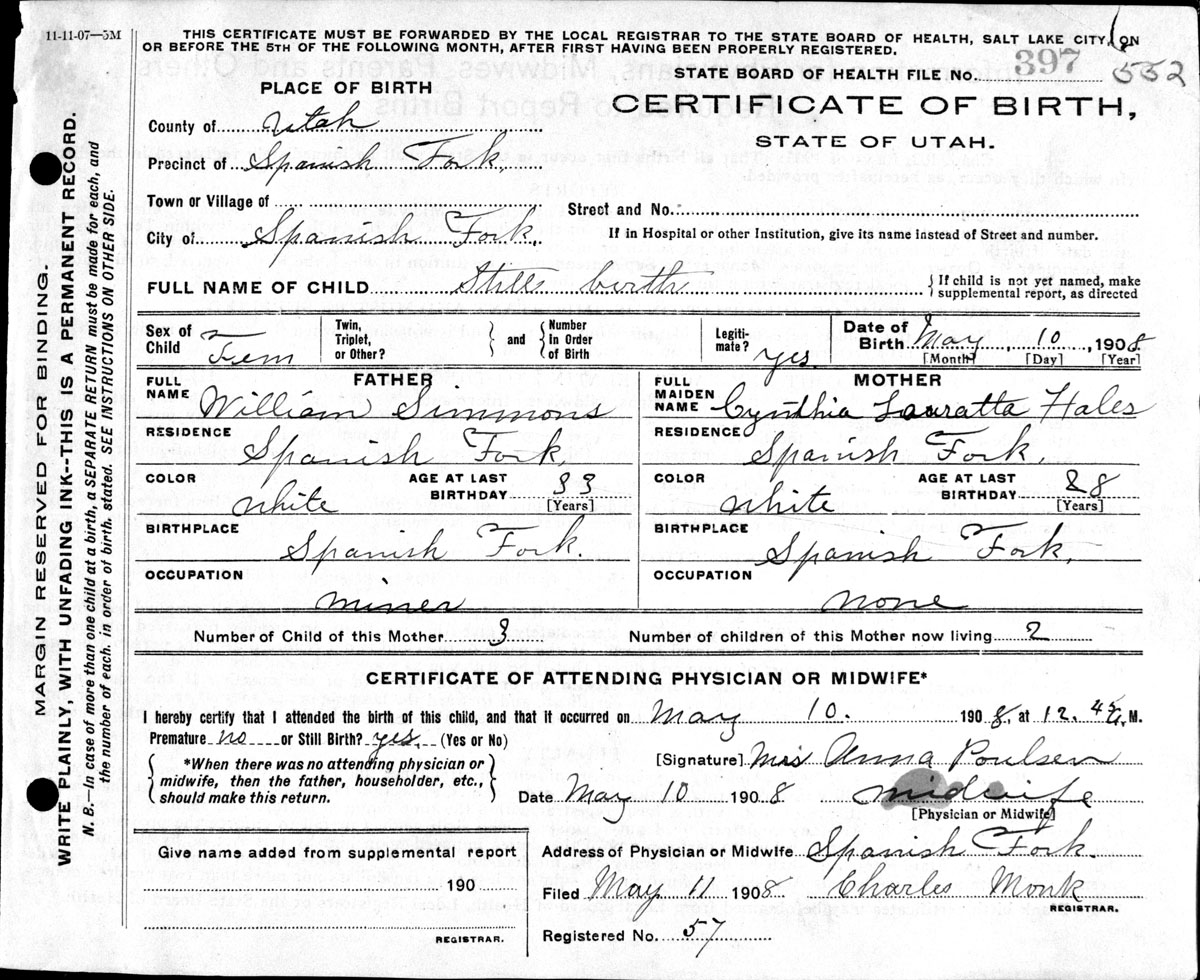 11-11-07—5M
THIS CERTIFICATE MUST BE FORWARDED BY THE LOCAL REGISTRAR TO THE STATE BOARD OF HEALTH, SALT LAKE CITY, ON
OR BEFORE THE 5TH OF THE FOLLOWING MONTH, AFTER FIRST HAVING BEEN PROPERLY REGISTERED.
STATE BOARD OF HEALTH FILE No. 397 552
PLACE OF BIRTH
CERTIFICATE OF BIRTH,
STATE OF UTAH.
County of Utah
Precinct of Spanish Fork.
Town or Village of
Street and No.
City of Spanish Fork.
If in Hospital or other Institution, give its name instead of Street and number.
FULL NAME OF CHILD Still birth
If child is not yet named, make
supplemental report, as directed
Sex of Child Fem
Twin, Triplet, or Other?
and
Number In Order of Birth
Legitimate? yes.
Date of Birth May 10, 1908
[Month] [Day] [Year]
FATHER
FULL NAME William Simmons
RESIDENCE Spanish Fork.
COLOR white
AGE AT LAST BIRTHDAY 33
[Years]
BIRTHPLACE Spanish Fork.
OCCUPATION miner
MOTHER
FULL MAIDEN NAME Cynthia Lauratta Hales
RESIDENCE Spanish Fork.
COLOR white
AGE AT LAST BIRTHDAY 28
[Years]
BIRTHPLACE Spanish Fork.
OCCUPATION none
Number of Child of this Mother 3
Number of children of this Mother now living 2
CERTIFICATE OF ATTENDING PHYSICIAN OR MIDWIFE*
I hereby certify that I attended the birth of this child, and that it occurred on May 10. 1908, at 12.45 a.M.
Premature no or Still Birth? yes. (Yes or No)
*When there was no attending physician or
midwife, then the father, householder, etc.,
should make this return.
[Signature] Mrs Anna Poulsen
Date May 10 1908 midwife
[Physician or Midwife]
Give name added from supplemental report
190
REGISTRAR.
Address of Physician or Midwife Spanish Fork.
Filed May 11 1908 Charles Monk
REGISTRAR.
Registered No. 57
MARGIN RESERVED FOR BINDING.
WRITE PLAINLY, WITH UNFADING INK--THIS IS A PERMANENT RECORD.
N. B.—In case of more than one child at a birth, a SEPARATE RETURN must be made for each, and
the number of each. in order of birth. stated. SEE INSTRUCTIONS ON OTHER SIDE.